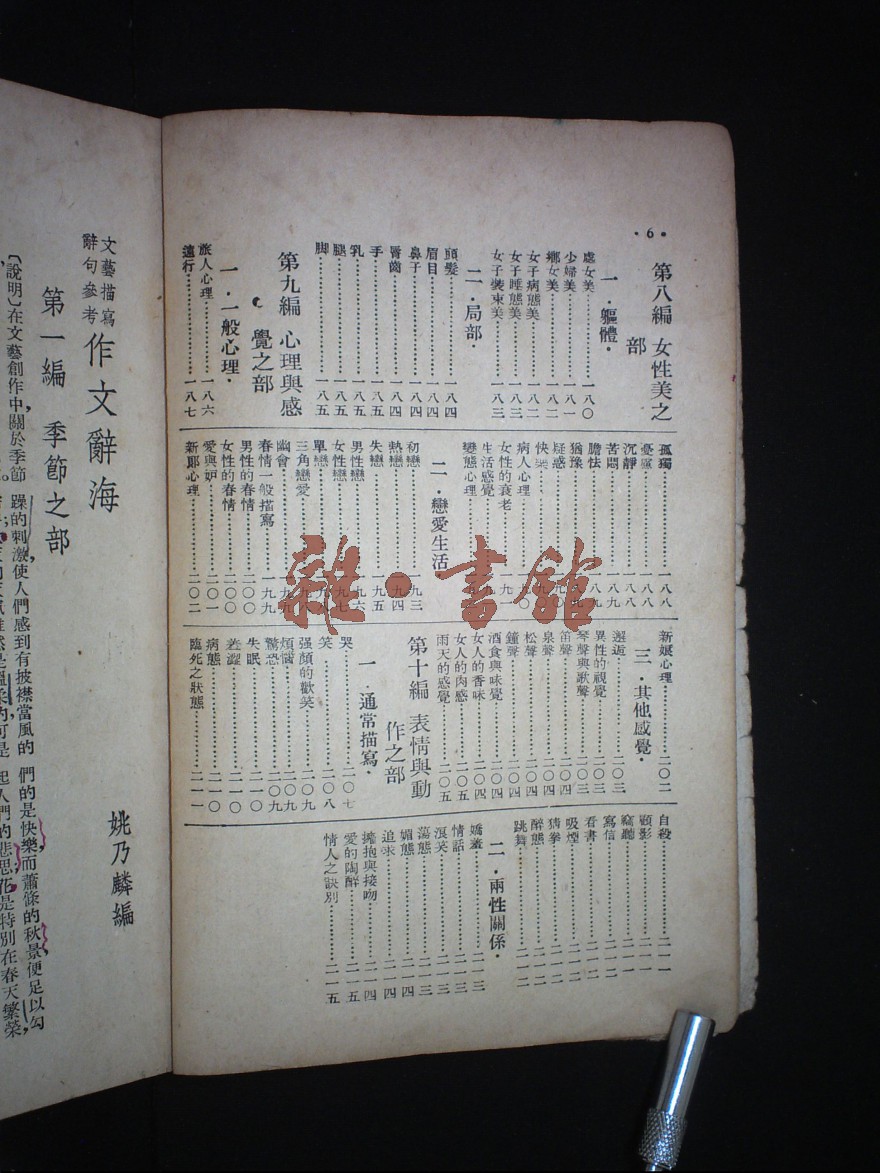 ·6·
第八編 女性美之
部
一·軀體·
處女美……一八〇
少婦美……一八一
鄉女美……一八二
女子病態美……一八二
女子睡態美……一八三
女子裝束美……一八三
二·局部·
頭髮……一八四
眉目……一八四
鼻子……一八四
脣齒……一八四
手……一八五
乳……一八五
腿……一八五
脚……一八五
第九編 心理與感
覺之部
一·一般心理·
旅人心理……一八六
遠行……一八七
孤獨……一八八
憂鬱……一八八
沉靜……一八八
苦悶……一八九
膽怯
猶豫
疑惑
快樂
病人心理
女性的衰老
生活感覺
變態心理
二·戀愛生活
初戀
熱戀
失戀……一九五
男性戀
女性戀
單戀
三角戀愛
幽會
春情一般描寫……一九九
男性的春情……二〇〇
女性的春情……二〇〇
愛與妒……二〇一
新郎心理……二〇二
新娘心理……二〇二
三·其他感覺·
邂逅……二〇三
異性的視覺……二〇三
琴聲與歌聲……二〇三
笛聲……二〇四
泉聲……二〇四
松聲……二〇四
鐘聲……二〇四
酒食與味覺……二〇四
女人的香味……二〇四
女人的肉感……二〇五
雨天的感覺……二〇五
第十編 表情與動
作之部
一·通常描寫·
哭……二〇七
笑……二〇八
强顏的歡笑……二〇九
煩惱……二〇九
驚恐……二〇九
失眠……二一〇
羞澀……二一〇
病態……二一〇
臨死之狀態……二一一
自殺……二一一
顧影……二一一
竊聽……二一一
寫信……二一一
看書……二一二
吸煙……二一二
猜拳……二一二
醉態……二一二
跳舞……二一二
二·兩性關係·
嬌羞……二一三
情話……二一三
淚笑……二一三
蕩態……二一三
媚態……二一四
追求……二一四
擁抱與接吻……二一四
愛的陶醉……二一五
情人之訣別……二一五
雜·書館
文藝描寫
辭句參考
作文辭海
姚乃麟編
第一編 季節之部
〔說明〕在文藝創作中,關於季節
躁的刺激使人們感到有披襟當風的
們的是快樂,而蕭條的秋景便足以勾
起人們的悲思,花是特別在春天繁榮,